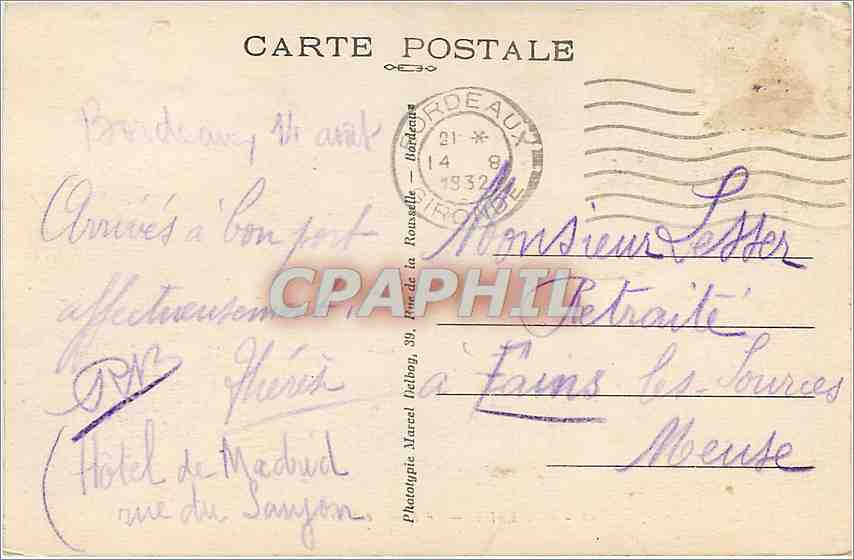 CARTE POSTALE
BORDEAUX
21 *
14 8
1932
GIRONDE
Bordeaux, 14 août
Arrivés à bon port
affectueusement
Thérèse
(Hôtel de Madrid
rue du
Phototypie Marcel Delboy, 39, Rue de la Rousselle — Bordeaux
Monsieur Lesser
Retraité
à Fains les-Sources
Meuse
CPAPHIL